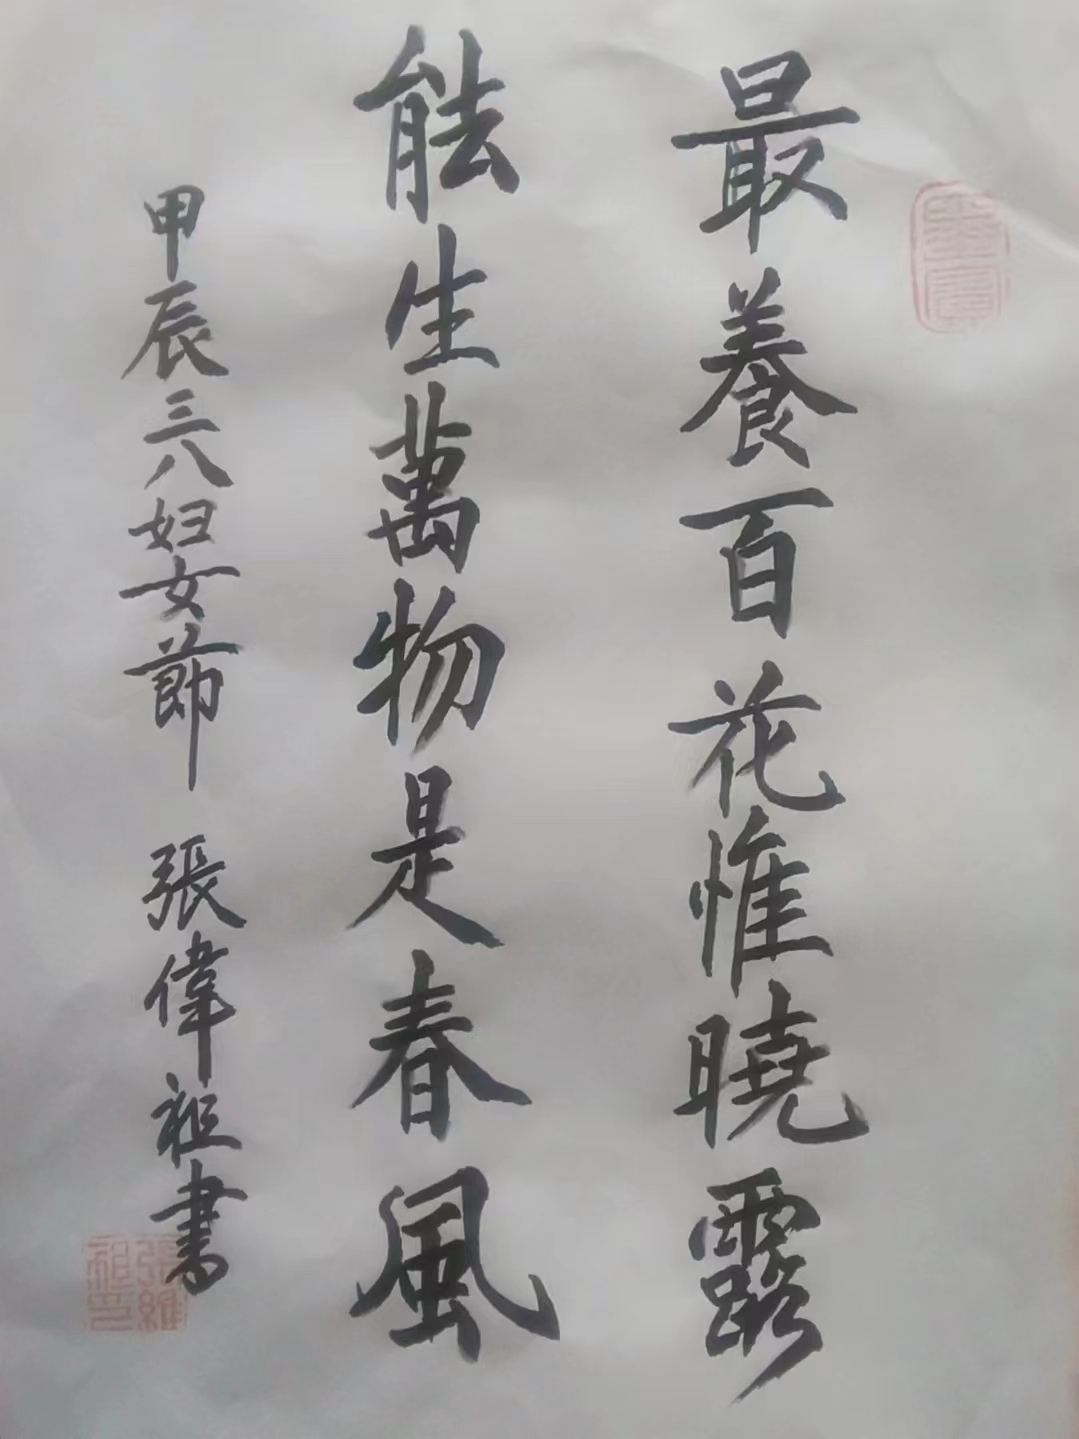 最養百花惟曉露
能生萬物是春風
甲辰三八妇女節 張偉祖書
張維祖印